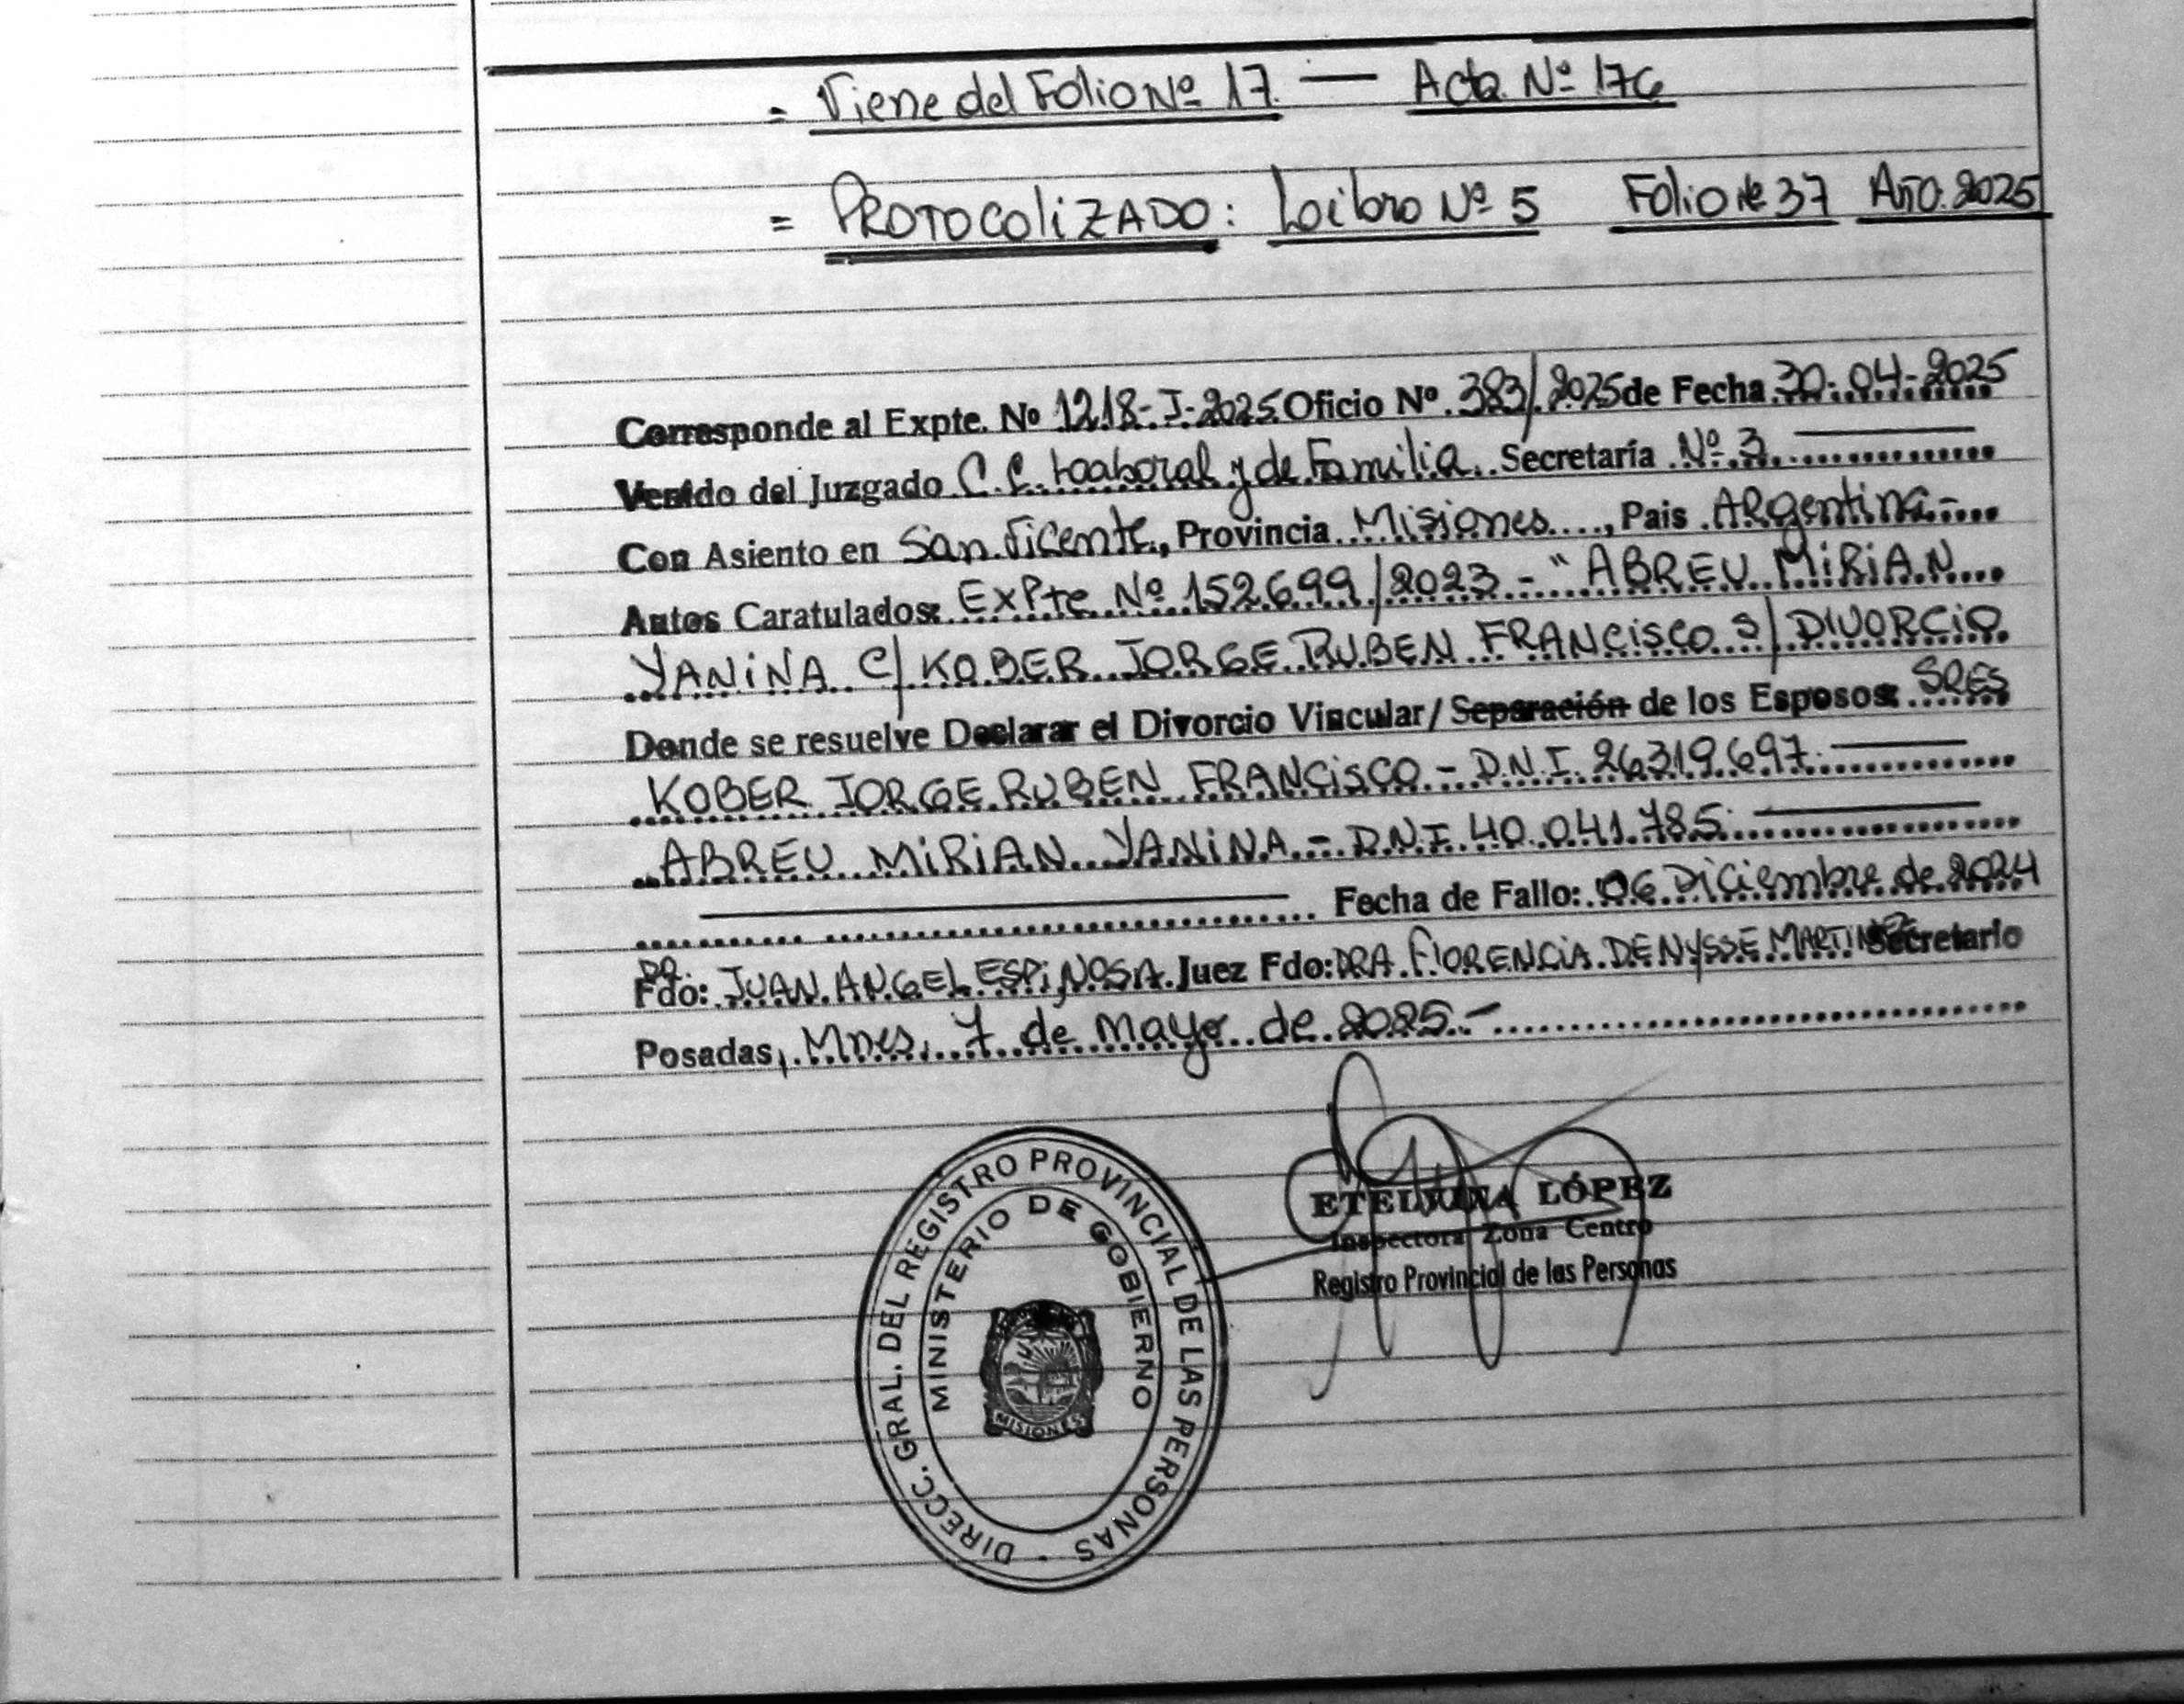 = Viene del Folio Nº 17. — Acta Nº 176
= PROTOCOLIZADO: Libro Nº 5 Folio Nº 37 AÑO. 2025
Corresponde al Expte. Nº 1218-I-2025 Oficio Nº 383/2025 de Fecha 30-04-2025
Venido del Juzgado C.C. Laboral y de Familia. Secretaría Nº 3.
Con Asiento en San Vicente, Provincia Misiones, Pais ARgentina-
Autos Caratulados: ExPte Nº 152699/2023 - "ABREU MiRiAN
YANiNA C/ KOBER JORGE RUBEN FRANCisco s/ DIVORCiO
Donde se resuelve Declarar el Divorcio Vincular/Separación de los Esposos: SRES
KOBER JORGE RUBEN FRANCisCO - D.N.I. 26319.697.
ABREU MiRiAN YANiNA - D.N.I 40.041.785.
Fecha de Fallo: 06 Diciembre de 2024
Fdo: DR. JUAN ANGEL ESPiNOSA. Juez Fdo: DRA. FlORENCiA DENYSSE MARTINEZ Secretario
Posadas, Mnes, 7 de Mayo de 2025.-
DIRECC. GRAL. DEL REGISTRO PROVINCIAL DE LAS PERSONAS
MINISTERIO DE GOBIERNO
MISIONES
ETELVINA LÓPEZ
Inspectora Zona Centro
Registro Provincial de las Personas